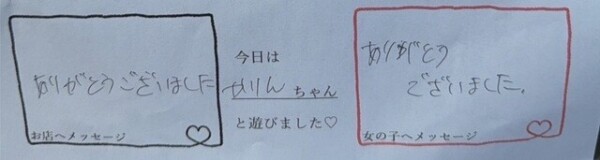 ありがとうございました
お店へメッセージ
今日は
かりんちゃん
と遊びました♡
ありがとう
ございました。
女の子へメッセージ